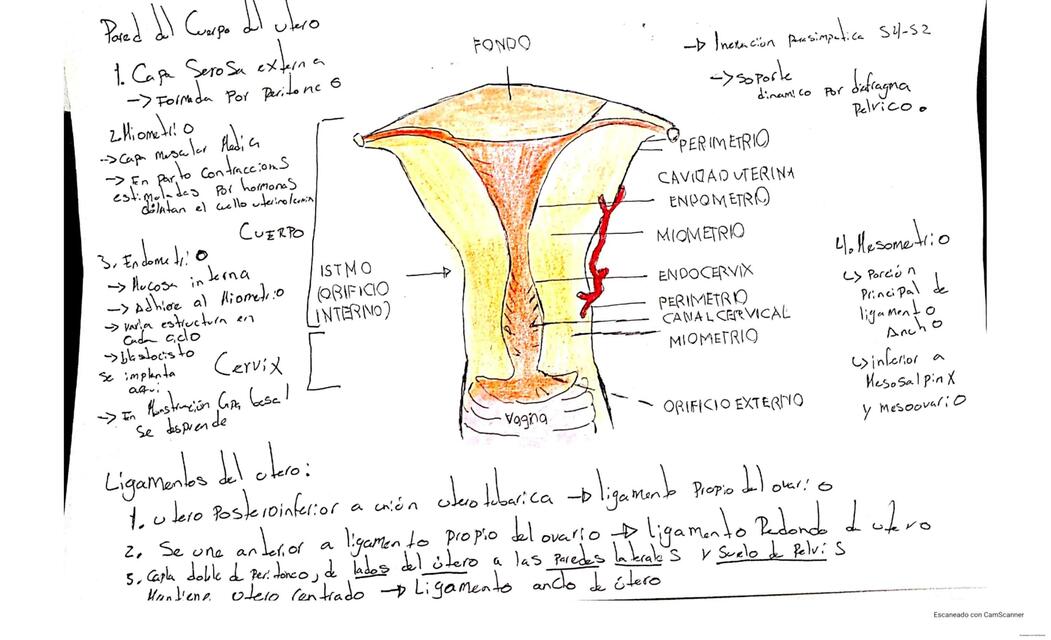 Pared del Cuerpo del utero
1. Capa Serosa externa
-> Formada Por Peritoneo
2. Miometrio
-> Capa muscular Media
-> En parto contracciones
estimuladas Por hormonas
dilatan el cuello uterino/cervix
CUERPO
3. Endometrio
-> Mucosa interna
-> Adhiere al Miometrio
-> varia estructura en
cada ciclo
-> blastocisto
se implanta
aqui
Cervix
-> En Menstruación Capa basal
se disprende
FONDO
ISTMO
(ORIFICIO
INTERNO)
Vagina
-> Inervacion Parasimpatica S4-S2
-> Soporte
dinamico Por diafragma
Pelvico.
PERIMETRIO
CAVIDAD UTERINA
ENDOMETRIO
MIOMETRIO
ENDOCERVIX
PERIMETRIO
CANAL CERVICAL
MIOMETRIO
ORIFICIO EXTERNO
4. Mesometrio
Porción
Principal de
ligamento
Ancho
inferior a
Mesosalpinx
y mesoovario
Ligamentos del utero:
1. utero Posteroinferior a unión uterotubarica -> ligamento Propio del ovario
2. Se une anterior a ligamento propio del ovario -> ligamento Redondo d utero
5. Capla doble d Peritoneo, de lados del útero a las Paredes laterales y Suelo de Pelvis
Mantiene utero Centrado -> Ligamento ancho de útero
Escaneado con CamScanner